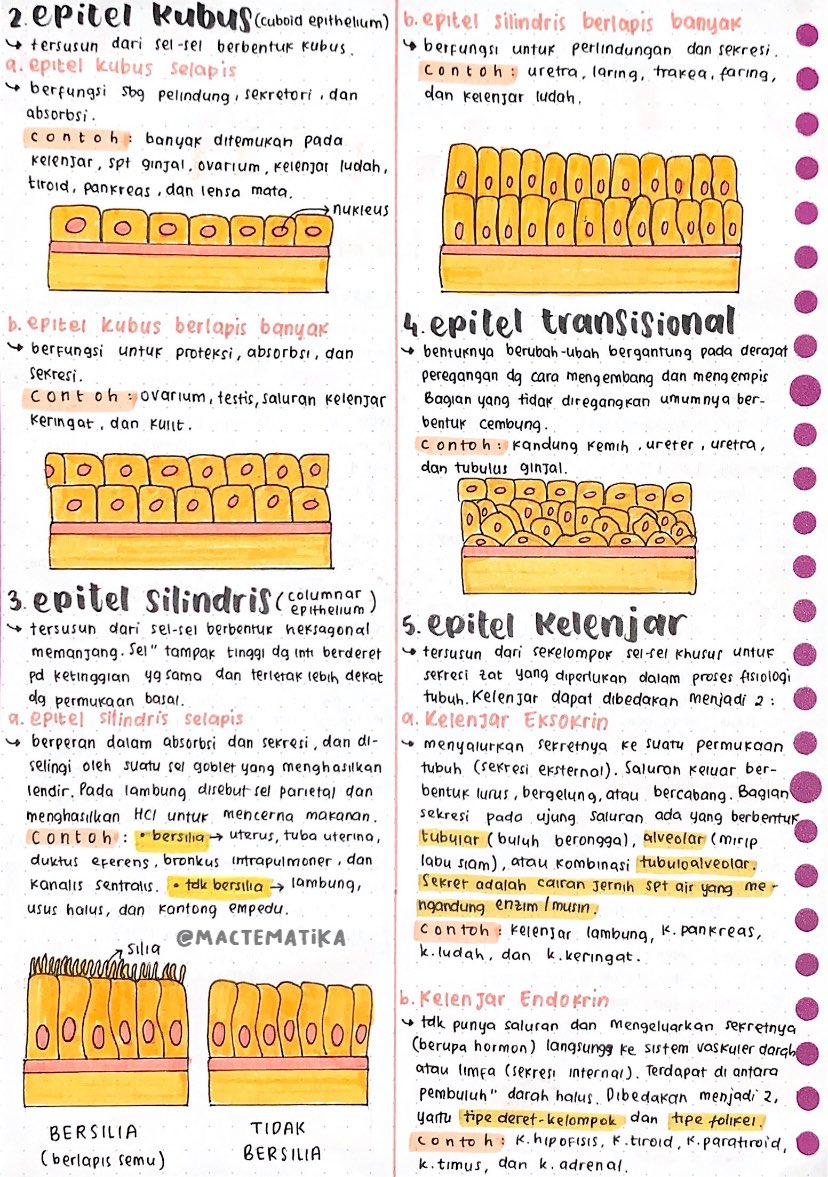 2. epitel kubus (cuboid epithelium)
↳ tersusun dari sel-sel berbentuk kubus.
a. epitel kubus selapis
↳ berfungsi sbg pelindung, sekretori, dan
absorbsi.
contoh: banyak ditemukan pada
kelenjar, spt ginjal, ovarium, kelenjar ludah,
tiroid, pankreas, dan lensa mata.
nukleus
b. epitel kubus berlapis banyak
↳ berfungsi untuk proteksi, absorbsi, dan
sekresi.
contoh: ovarium, testis, saluran kelenjar
keringat, dan kulit.
3. epitel silindris (columnar
epithelium)
↳ tersusun dari sel-sel berbentuk heksagonal
memanjang. Sel" tampak tinggi dg inti berderet
pd ketinggian yg sama dan terletak lebih dekat
dg permukaan basal.
a. epitel silindris selapis
↳ berperan dalam absorbsi dan sekresi, dan di-
selingi oleh suatu sel goblet yang menghasilkan
lendir. Pada lambung disebut sel parietal dan
menghasilkan HCl untuk mencerna makanan.
contoh: • bersilia → uterus, tuba uterina,
duktus eferens, bronkus intrapulmoner, dan
kanalis sentralis. • tdk bersilia → lambung,
usus halus, dan kantong empedu.
@MACTEMATIKA
silia
BERSILIA
(berlapis semu)
TIDAK
BERSILIA
b. epitel silindris berlapis banyak
↳ berfungsi untuk perlindungan dan sekresi.
contoh: uretra, laring, trakea, faring,
dan kelenjar ludah.
4. epitel transisional
↳ bentuknya berubah-ubah bergantung pada derajat
peregangan dg cara mengembang dan mengempis
Bagian yang tidak diregangkan umumnya ber-
bentuk cembung.
contoh: kandung kemih, ureter, uretra,
dan tubulus ginjal.
5. epitel kelenjar
↳ tersusun dari sekelompok sel-sel khusus untuk
sekresi zat yang diperlukan dalam proses fisiologi
tubuh. Kelenjar dapat dibedakan menjadi 2:
a. Kelenjar Eksokrin
↳ menyalurkan sekretnya ke suatu permukaan
tubuh (sekresi eksternal). Saluran keluar ber-
bentuk lurus, bergelung, atau bercabang. Bagian
sekresi pada ujung saluran ada yang berbentuk
tubular (buluh berongga), alveolar (mirip
labu siam), atau kombinasi tubuloalveolar.
Sekret adalah cairan jernih spt air yang me-
ngandung enzim/musin.
contoh: kelenjar lambung, k.pankreas,
k.ludah, dan k.keringat.
b. Kelenjar Endokrin
↳ tdk punya saluran dan mengeluarkan sekretnya
(berupa hormon) langsung ke sistem vaskuler darah
atau limfa (sekresi internal). Terdapat di antara
pembuluh" darah halus. Dibedakan menjadi 2,
yaitu tipe deret-kelompok dan tipe folikel.
contoh: k.hipofisis, k.tiroid, k.paratiroid,
k.timus, dan k.adrenal.